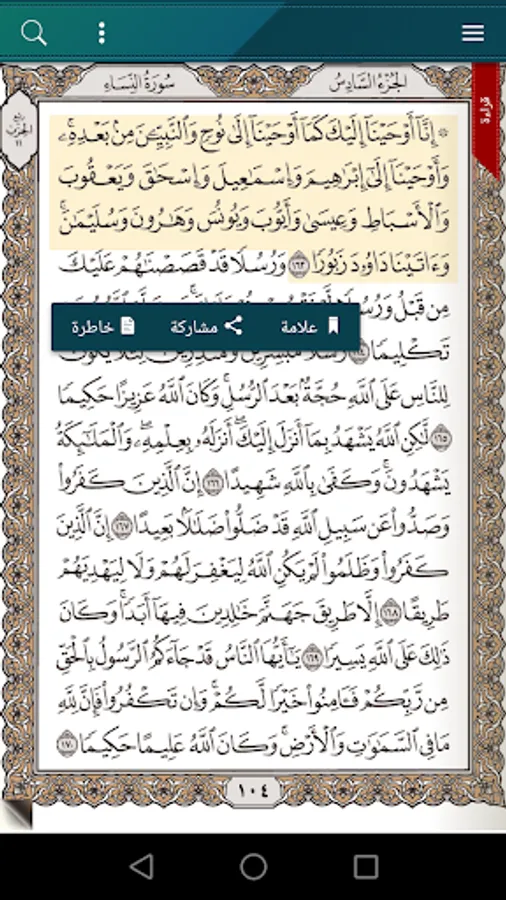 سُورَةُ النِّسَاءِ
الجُزْءُ السَّادِسُ
قراءة
ربع
الحزب
١١
۞ إِنَّا أَوْحَيْنَا إِلَيْكَ كَمَا أَوْحَيْنَا إِلَى نُوحٍ وَالنَّبِيِّينَ مِنْ بَعْدِهِ ۚ
وَأَوْحَيْنَا إِلَى إِبْرَاهِيمَ وَإِسْمَاعِيلَ وَإِسْحَقَ وَيَعْقُوبَ
وَالْأَسْبَاطِ وَعِيسَى وَأَيُّوبَ وَيُونُسَ وَهَارُونَ وَسُلَيْمَانَ ۚ
وَءَاتَيْنَا دَاوُدَ زَبُورًا ١٦٣ وَرُسُلًا قَدْ قَصَصْنَاهُمْ عَلَيْكَ
مِن قَبْلُ وَرُسُلًا
خاطرة
مشاركة
علامة
تَكْلِيمًا
لِلنَّاسِ عَلَى اللَّهِ حُجَّةٌ بَعْدَ الرُّسُلِ ۚ وَكَانَ اللَّهُ عَزِيزًا حَكِيمًا
١٦٥ لَّكِنِ اللَّهُ يَشْهَدُ بِمَا أَنزَلَ إِلَيْكَ ۖ أَنزَلَهُ بِعِلْمِهِ ۖ وَالْمَلَائِكَةُ
يَشْهَدُونَ ۚ وَكَفَى بِاللَّهِ شَهِيدًا ١٦٦ إِنَّ الَّذِينَ كَفَرُوا
وَصَدُّوا عَن سَبِيلِ اللَّهِ قَدْ ضَلُّوا ضَلَالًا بَعِيدًا ١٦٧ إِنَّ الَّذِينَ
كَفَرُوا وَظَلَمُوا لَمْ يَكُنِ اللَّهُ لِيَغْفِرَ لَهُمْ وَلَا لِيَهْدِيَهُمْ
طَرِيقًا ١٦٨ إِلَّا طَرِيقَ جَهَنَّمَ خَالِدِينَ فِيهَا أَبَدًا ۚ وَكَانَ
ذَلِكَ عَلَى اللَّهِ يَسِيرًا ١٦٩ يَا أَيُّهَا النَّاسُ قَدْ جَاءَكُمُ الرَّسُولُ بِالْحَقِّ
مِن رَّبِّكُمْ فَآمِنُوا خَيْرًا لَّكُمْ ۚ وَإِن تَكْفُرُوا فَإِنَّ لِلَّهِ
مَا فِي السَّمَاوَاتِ وَالْأَرْضِ ۚ وَكَانَ اللَّهُ عَلِيمًا حَكِيمًا ١٧٠
١٠٤